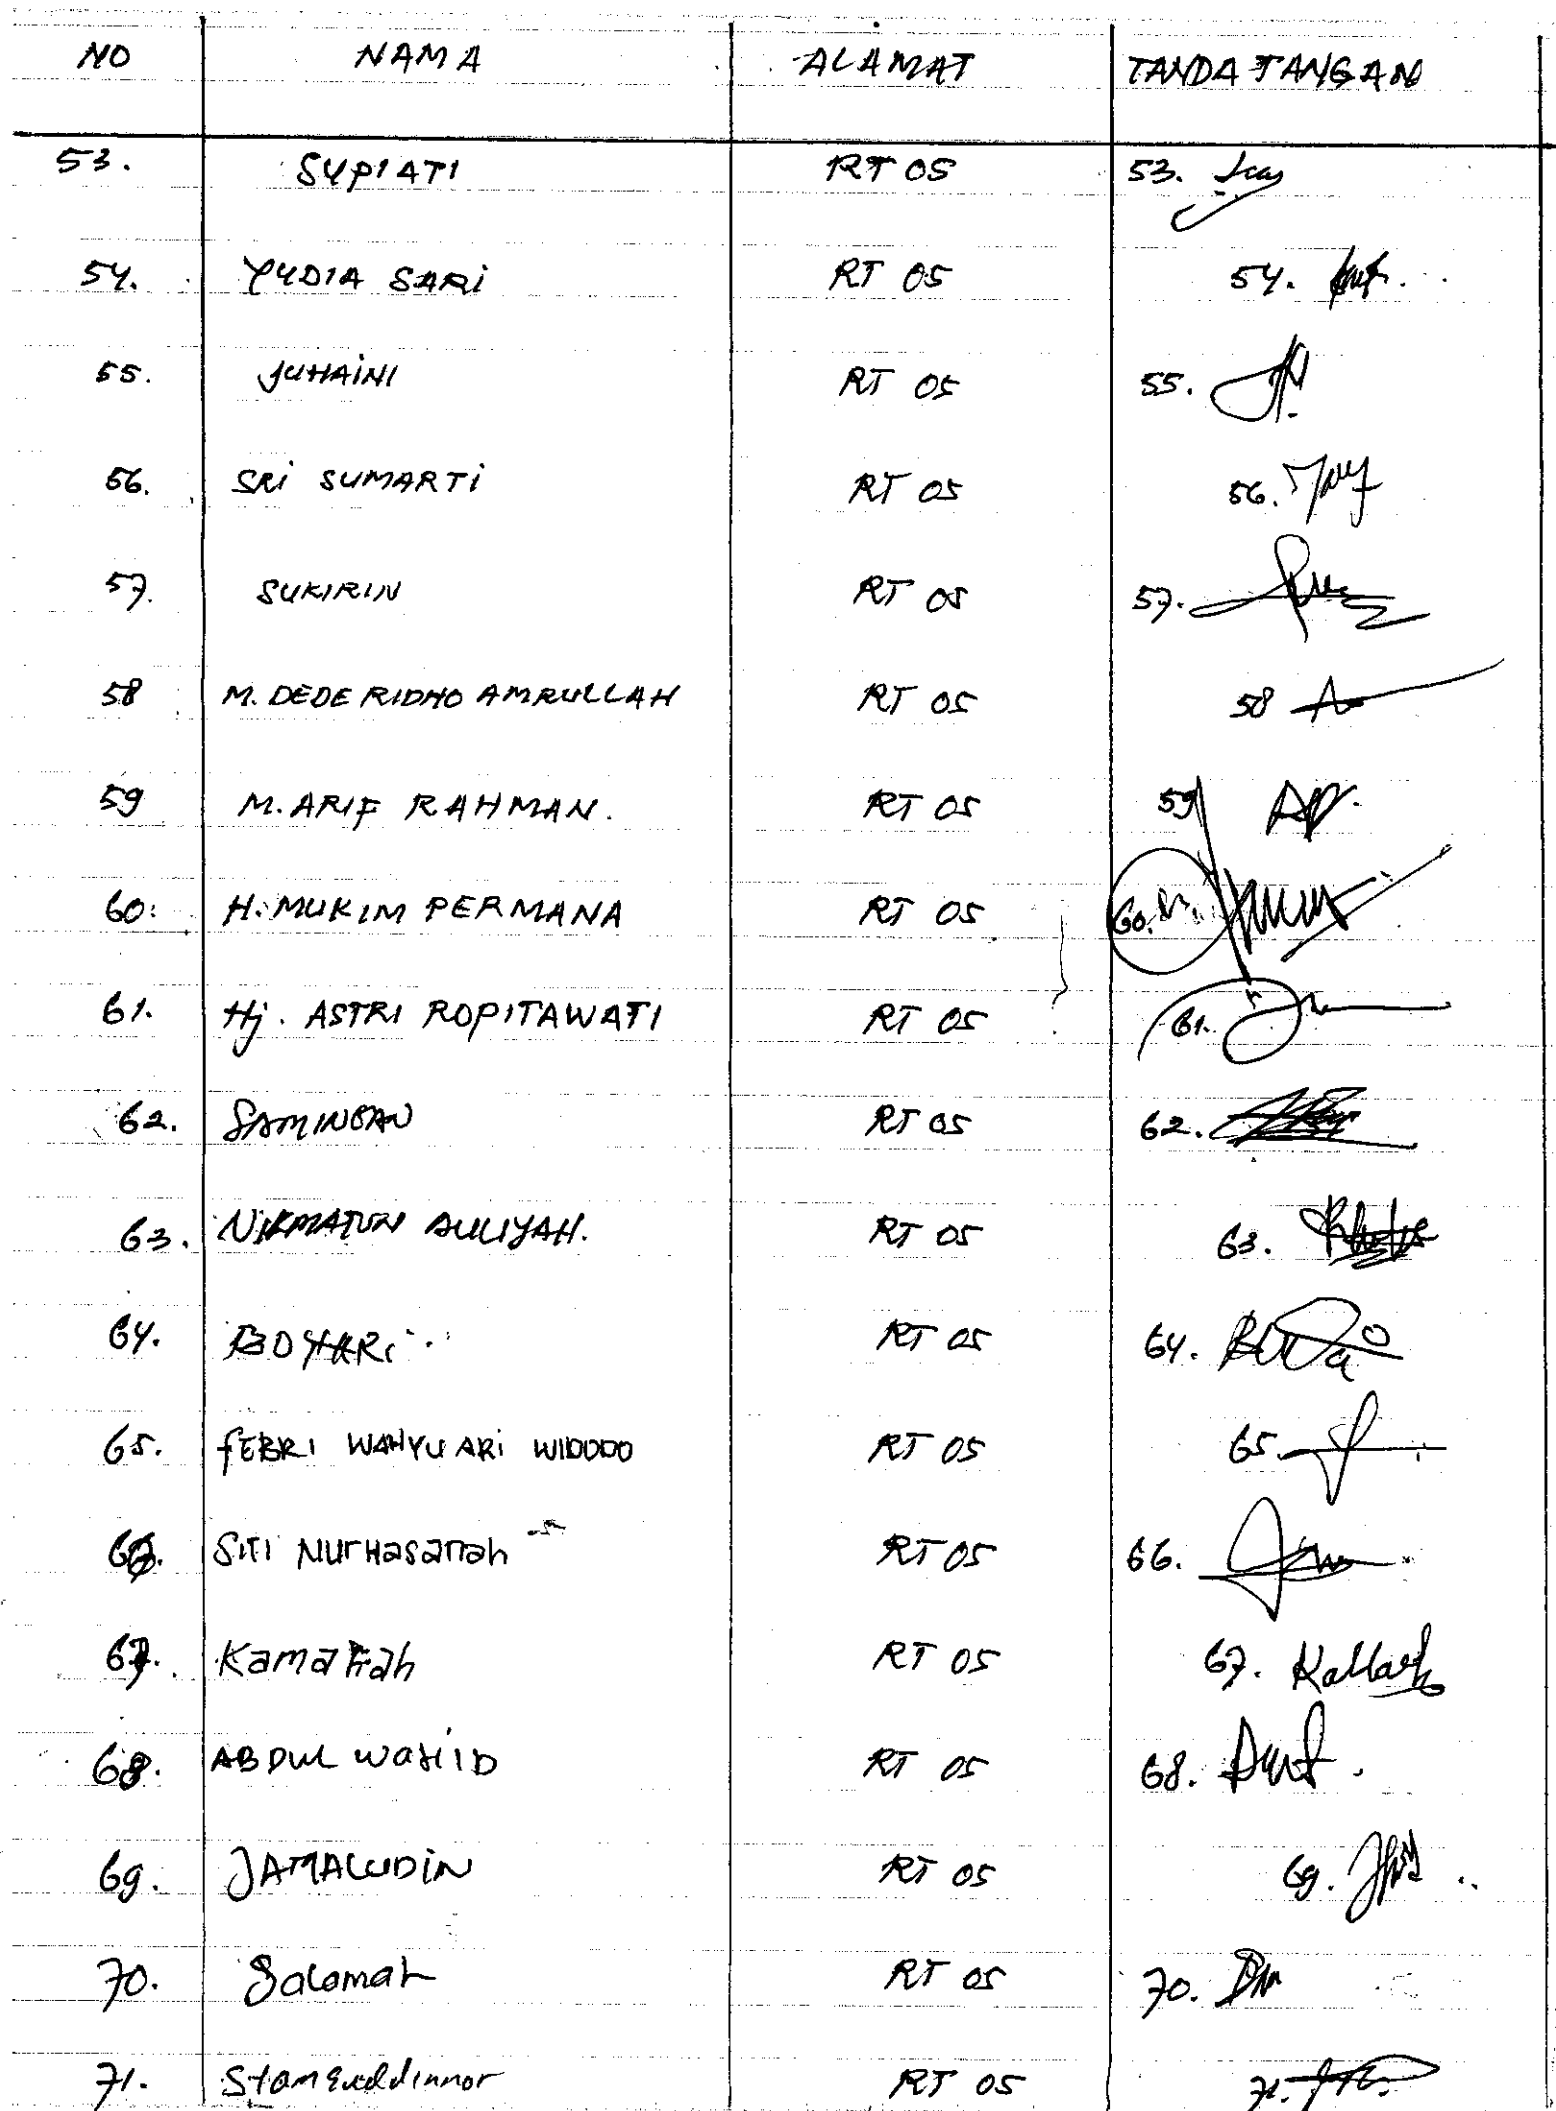 NO NAMA ALAMAT TANDA TANGAN
53. SUPIATI RT 05 53.
54. YUDIA SARI RT 05 54.
55. JUHAINI RT 05 55.
56. SRI SUMARTI RT 05 56.
57. SUKIRIN RT 05 57.
58 M. DEDE RIDHO AMRULLAH RT 05 58
59 M. ARIF RAHMAN. RT 05 59
60. H. MUKIM PERMANA RT 05 60.
61. Hj. ASTRI ROPITAWATI RT 05 61.
62. RT 05 62.
63. NIKMATUN AULIYAH. RT 05 63.
64. RT 05 64.
65. FEBRI WAHYU ARI WIDODO RT 05 65.
66. SITI NurHasanah RT 05 66.
67. RT 05 67.
68. ABDUL WAHID RT 05 68.
69. JAMALUDIN RT 05 69.
70. Salamah RT 05 70.
71. RT 05 71.